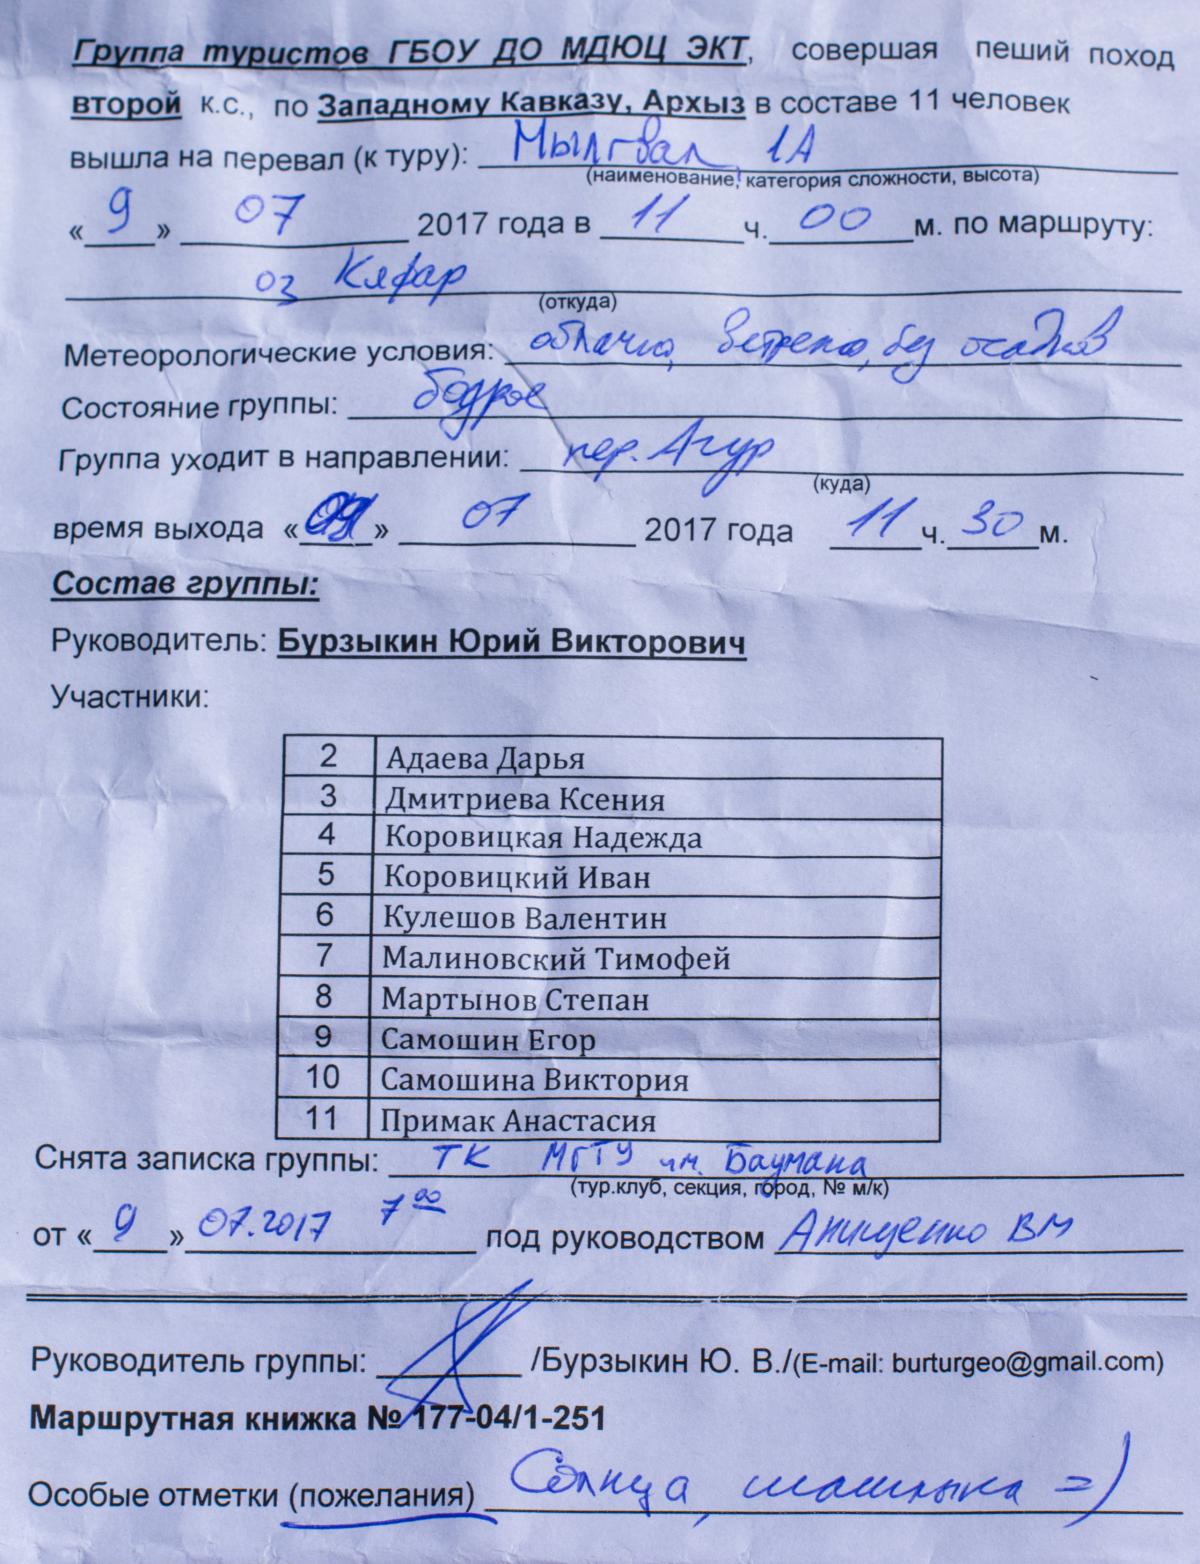 Группа туристов ГБОУ ДО МДЮЦ ЭКТ, совершая пеший поход
второй к.с., по Западному Кавказу, Архыз в составе 11 человек
вышла на перевал (к туру): Мылгвал, 1А
(наименование, категория сложности, высота)
«9» 07 2017 года в 11 ч. 00 м. по маршруту:
оз Кяфар
(откуда)
Метеорологические условия: облачно, ветрено, без осадков
Состояние группы: бодрое
Группа уходит в направлении: пер. Агур
(куда)
время выхода «09» 07 2017 года 11 ч. 30 м.
Состав группы:
Руководитель: Бурзыкин Юрий Викторович
Участники:
2 Адаева Дарья
3 Дмитриева Ксения
4 Коровицкая Надежда
5 Коровицкий Иван
6 Кулешов Валентин
7 Малиновский Тимофей
8 Мартынов Степан
9 Самошин Егор
10 Самошина Виктория
11 Примак Анастасия
Снята записка группы: ТК МГТУ им. Баумана
(тур.клуб, секция, город, № м/к)
от «9» 07.2017 7 00 под руководством Анищенко ВМ
Руководитель группы: /Бурзыкин Ю. В./(E-mail: burturgeo@gmail.com)
Маршрутная книжка № 177-04/1-251
Особые отметки (пожелания) Солнца, шашлыка =)